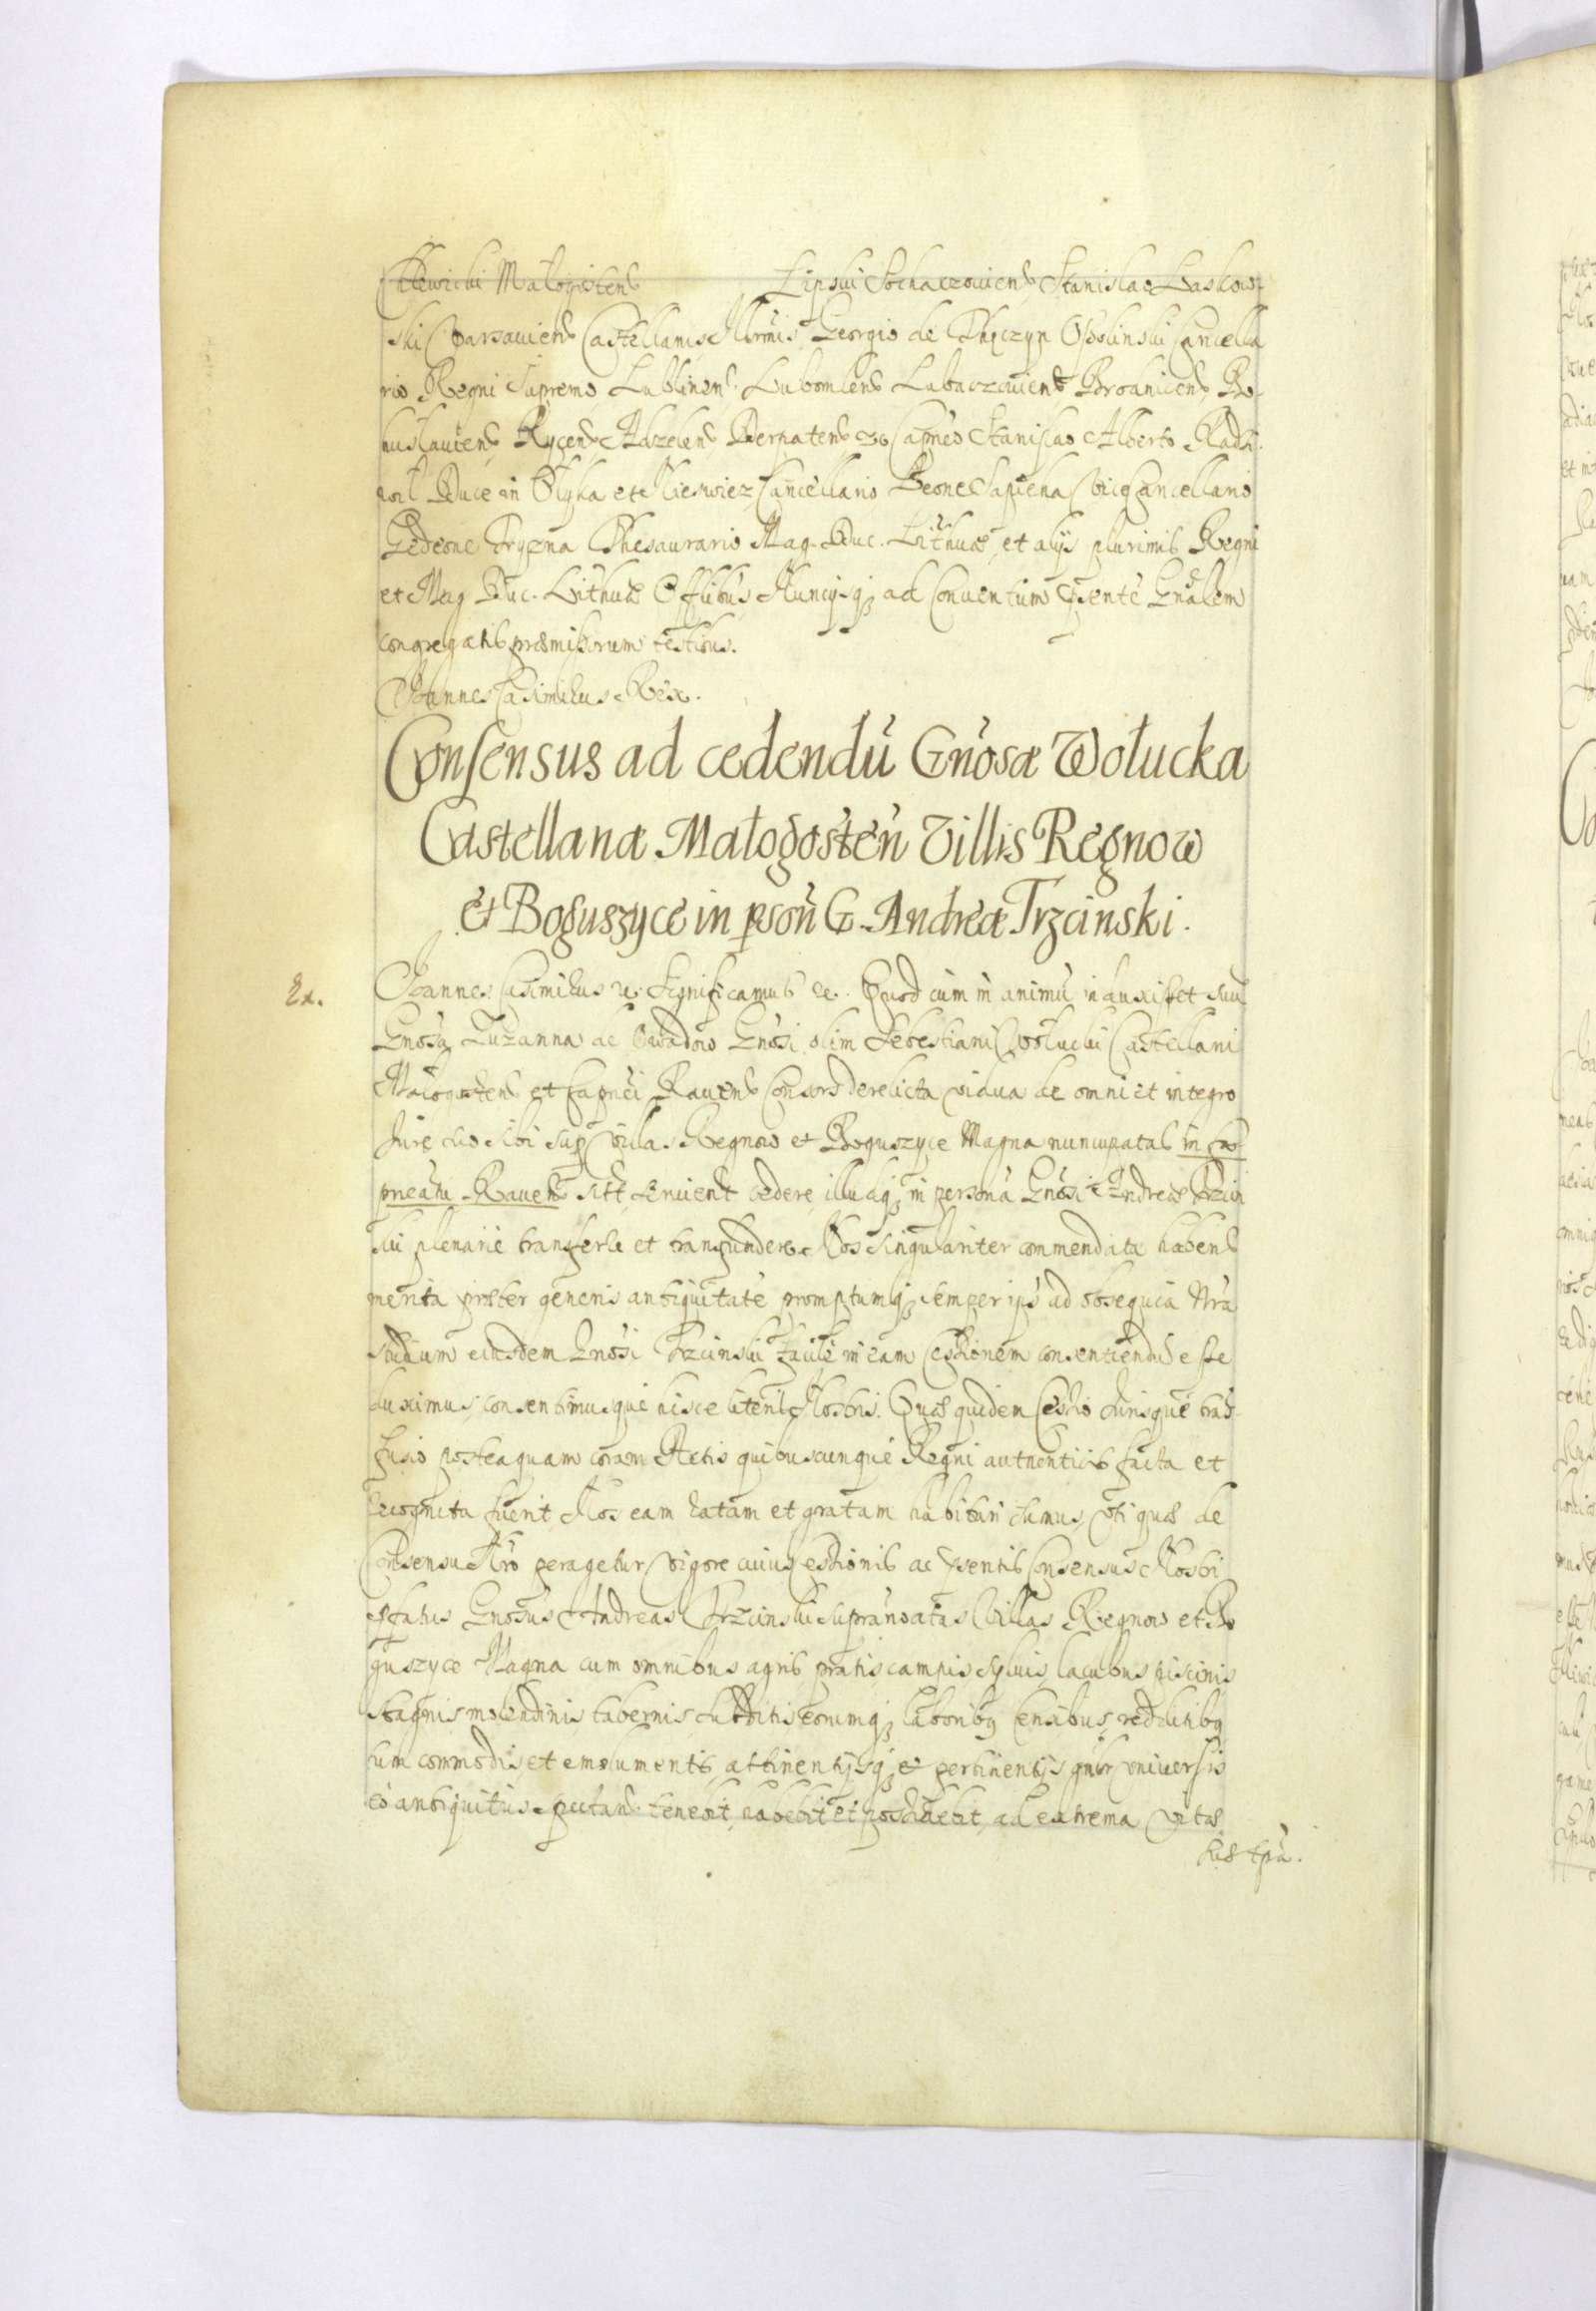 Małogosten Lipski Sochaczouien Stanislao Laskow
ski Varsauien Castellanis Georgio de Thęczyn Ossolinski Cancella
rio Regni Supremo, Lublinen. Lubomlen Lubaczouien Bo
huslauien, Rycen, Adzelen Derpaten Capneo Stanislao Alberto Radzi
uil Duce in Olyka et Nieswiez Cancellario Leone Sapieha Vicecancellario
Gedeone Tryzna Thesaurario Mag. Duc. Lithuae, et alijs plurimis Regni
et Mag Duc. Lithuae Offlibus Nuncijsq; ad Conuentum psente Gnalem
congregatis praemissorum testibus.
Joannes Casimirus Rex.
Consensus ad cedendū Gnosæ Wołucka
Castellanæ Małogosten Villis Regnow
et Boguszyce in pson G. Andreæ Trzcinski.
Rx.
Joannes Casimirus Significamus &c. Quod cum in animū induxisset suū
Gnosa Zuzanna ac Gnosi olim Sebestiani Wolucki Castellani
Małogosten et Capnei Rauen Consors derelicta vidua de omni et integro
Jure suo sibi sup Villas Regnow et Boguszyce Magna nuncupatas in Ca
pneatu Rauen sitt seruient cedere, illudq; in personā Gnosi Andreae Trzcin
ski plenarie transferre et transfundere. Nos singulariter commendata habens
merita praeter generis antiquitatē promptumq; semper ipś ad obsequia Nra
studium eiusdem Gnosi Trzcinski facile in eam Cessionem consentiendū esse
duximus, consentimusque hisce literis Nostris. Quae quidem Cessio Jurisque trans
fusio posteaquam coram Actis quibuscunque Regni autenticis facta et
recognita fuerit Nos eam ratam et gratam habituri sumus, vti quae de
Consensu Nro peragetur vigore cuius Cessionis ac psentis Consensus Nostri
pfatus Gnosus Andreas Trzcinski supranotatas Villas Regnow et Bo
guszyce Magna cum omnibus agris pratis campis syluis, lacubus piscinis
stagnis molendinis tabernis subditis eorumq; laboribq censibus, reddutibq
cum commodis et emolumentis, attinentijsq; et pertinentijs gnlr vniuersis
eo antiquitus spectan. tenebit, habebit et possidebit, ad extrema vitae
suae tpa.